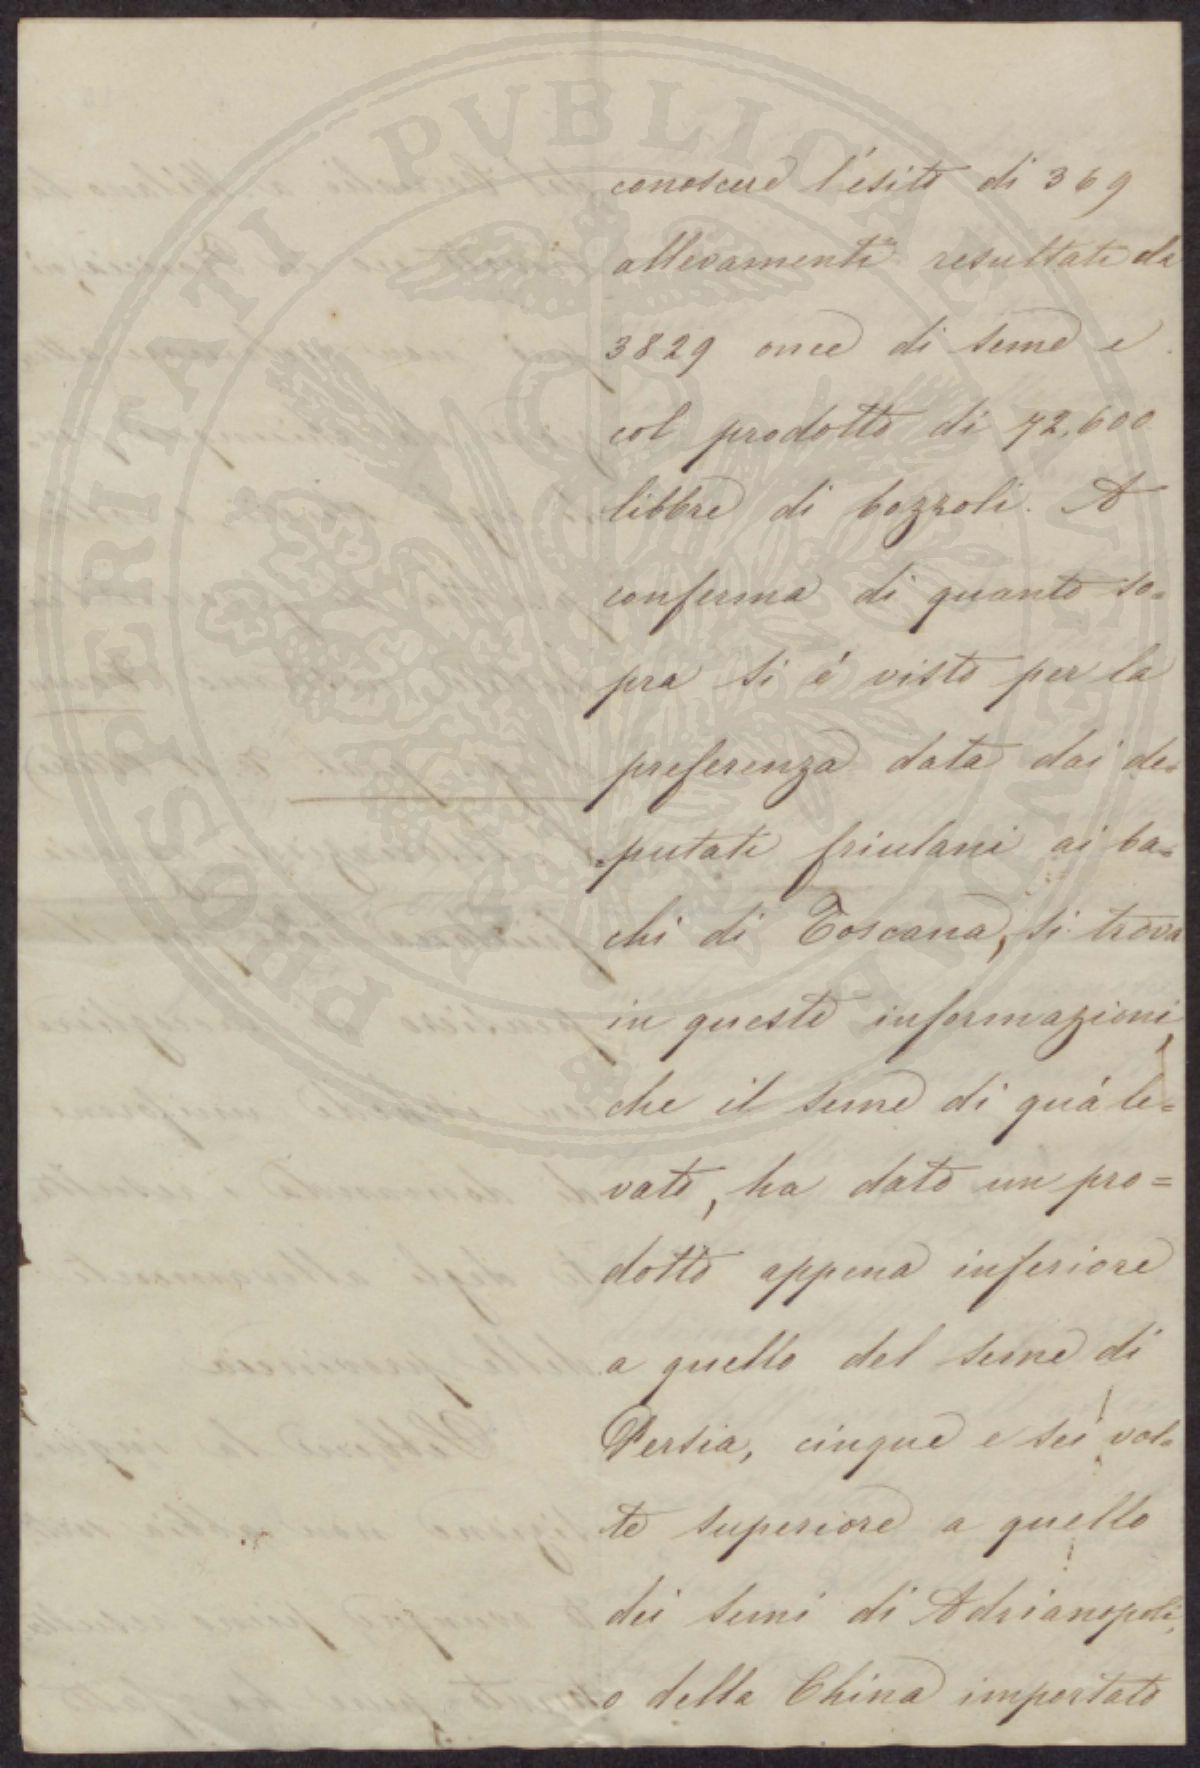 PROSPERITATI PUBLICAE AUGENDAE
conoscere l'ésito di 369
allevamenti resultati da
3829 once di seme e
col prodotto di 72,600
libbre di bozzoli. A
conferma di quanto so=
pra si é visto per la
preferenza data dai de=
=putati friulani ai ba=
chi di Toscana, si trova
in queste informazioni,
che il seme di quá le=
vato, ha dato un pro=
dotto appena inferiore
a quello del seme di
Persia, cinque e sei vol=
te superiore a quello
dei semi di Adrianopoli,
o della China importato